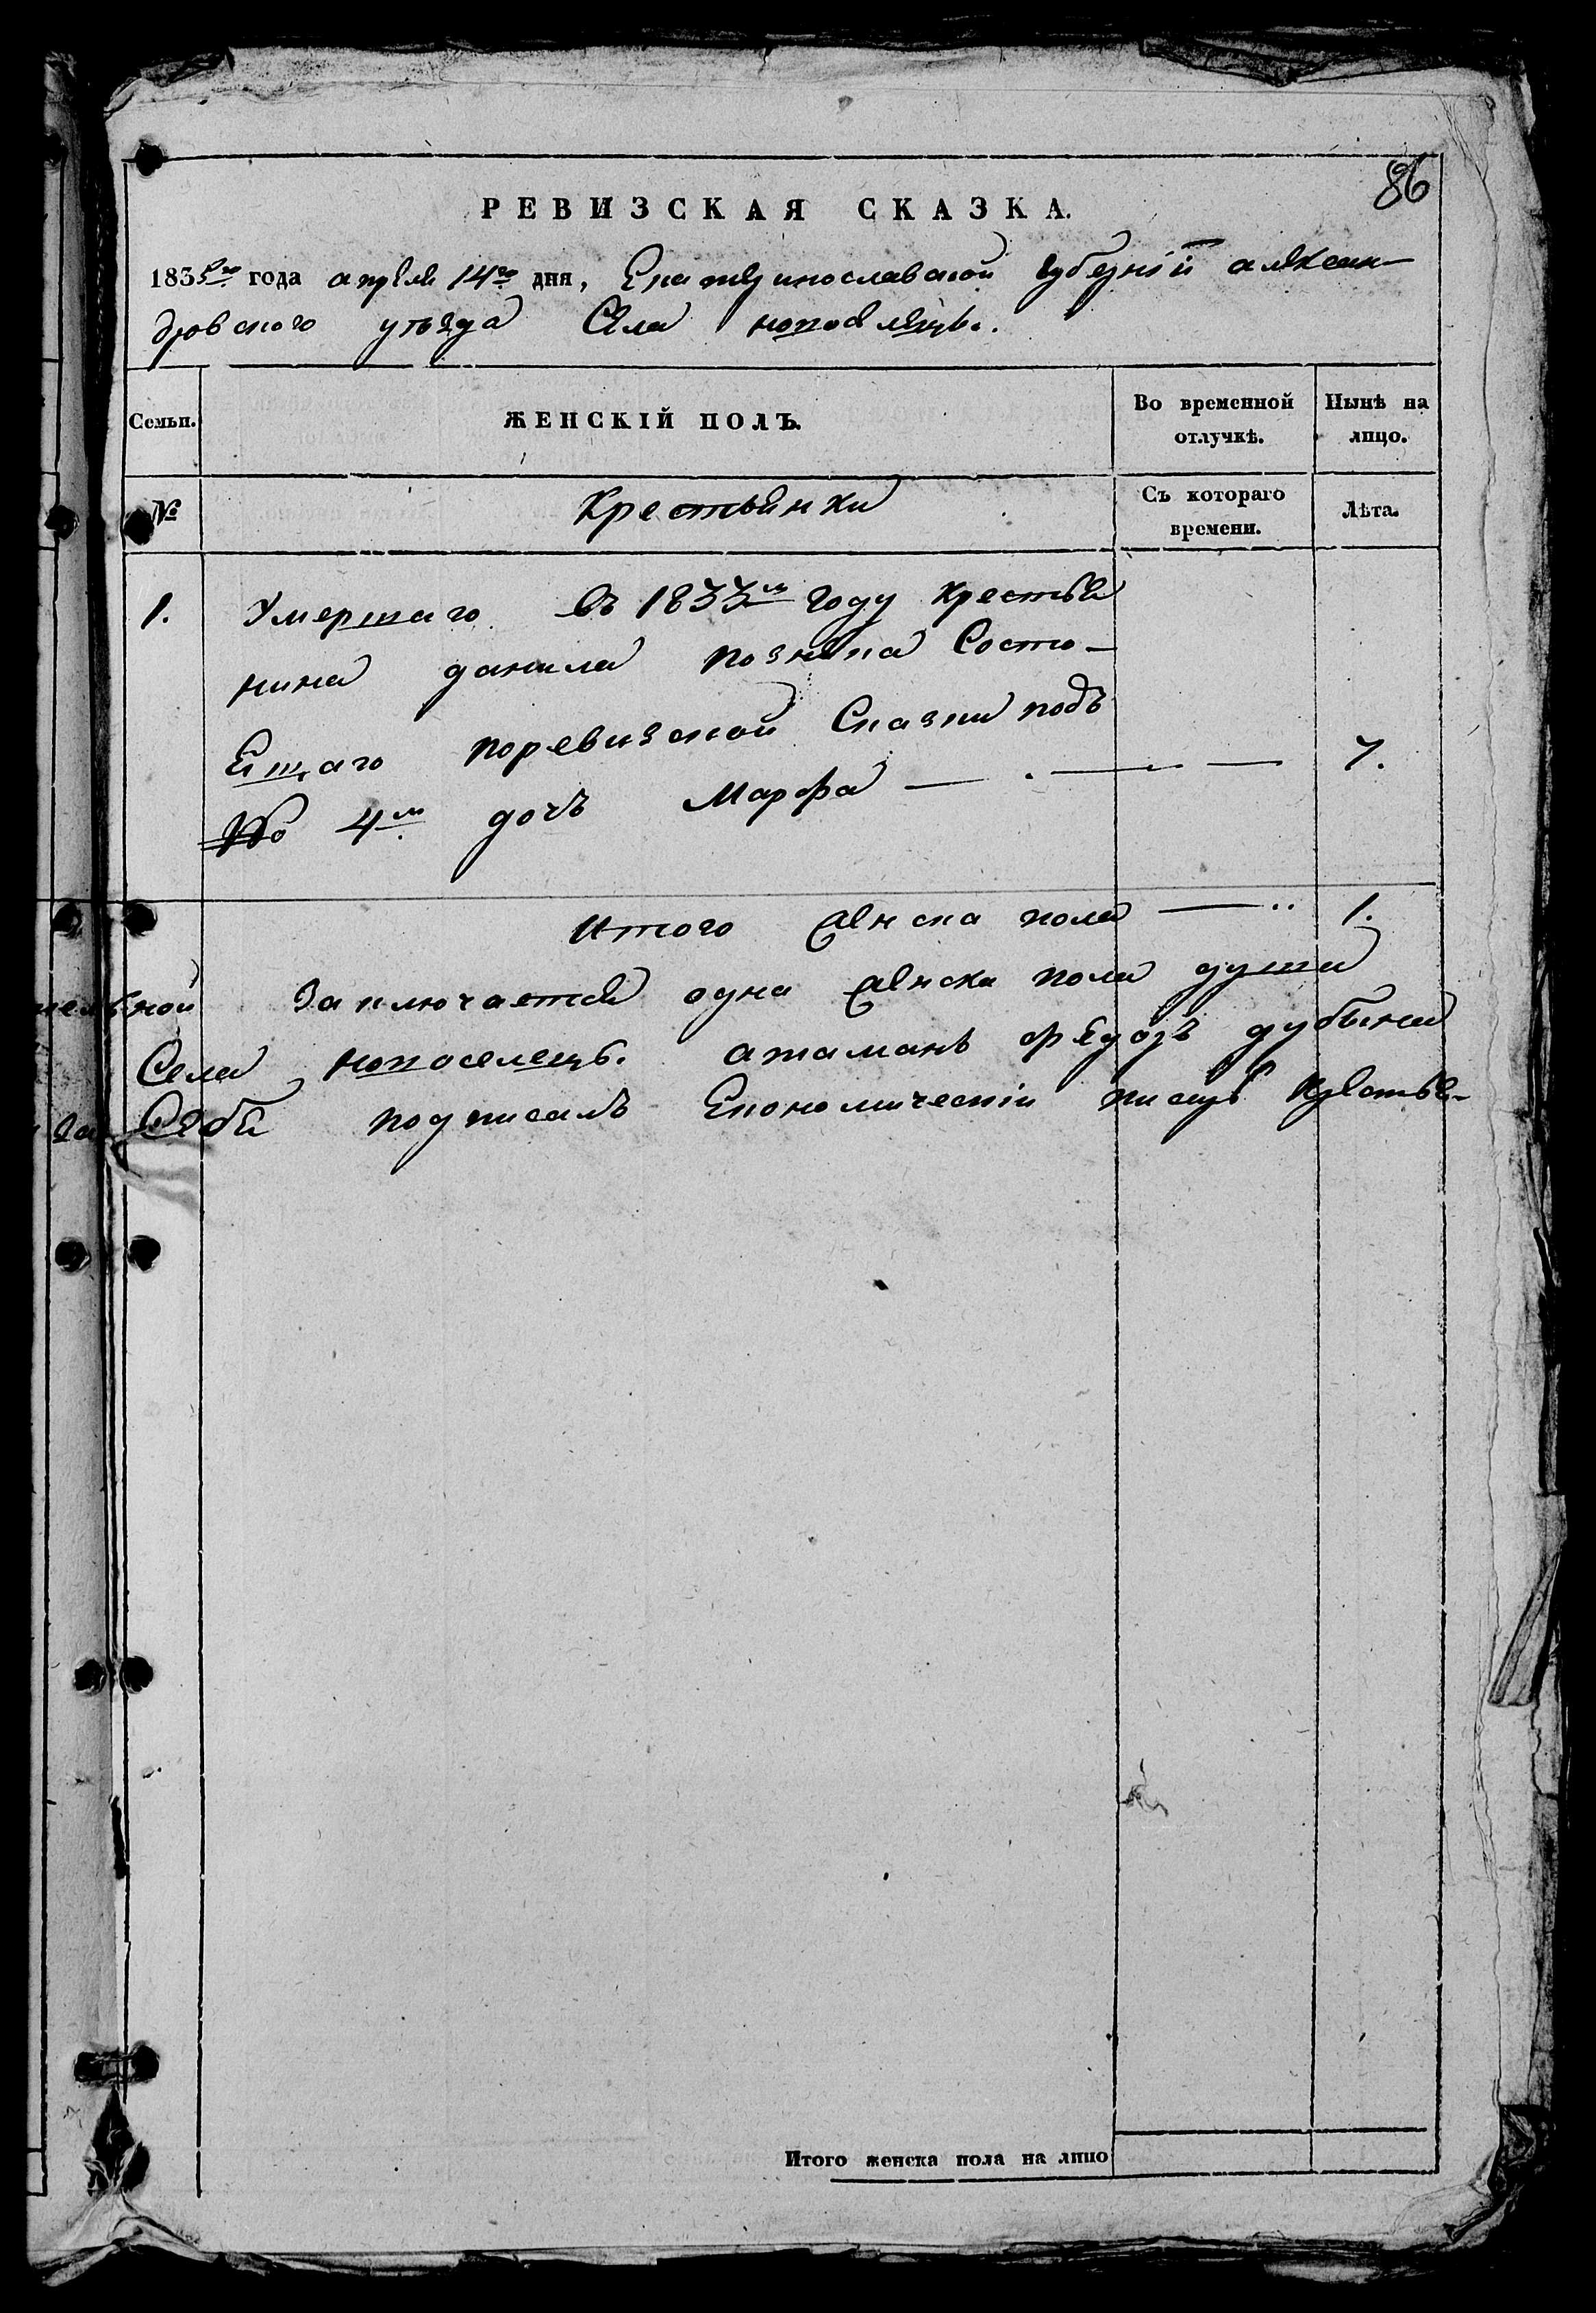 86
РЕВИЗСКАЯ СКАЗКА.
1835го года апреля 14го дня, Екатеринославской губернїй алексан-
дровского уѣзда Села новоселецъ.
Семьи. ЖЕНСКІЙ ПОЛЪ. Во временной отлучкѣ. Нынѣ на лицо.
№ Крестьянки Съ котораго времени. Лѣта.
1. Умершаго въ 1833м году крестья
нина данила позняка Состо-
Ящаго поревизской Сказки подъ
№ 4м дочь Марфа — 7.
Итого женска пола — 1.
Заключается одна женска пола душа
Села новоселецъ. атаманъ федоръ дубына
За Себя подписалъ Економическїи писецъ крестья-
Итого женска пола на лицо